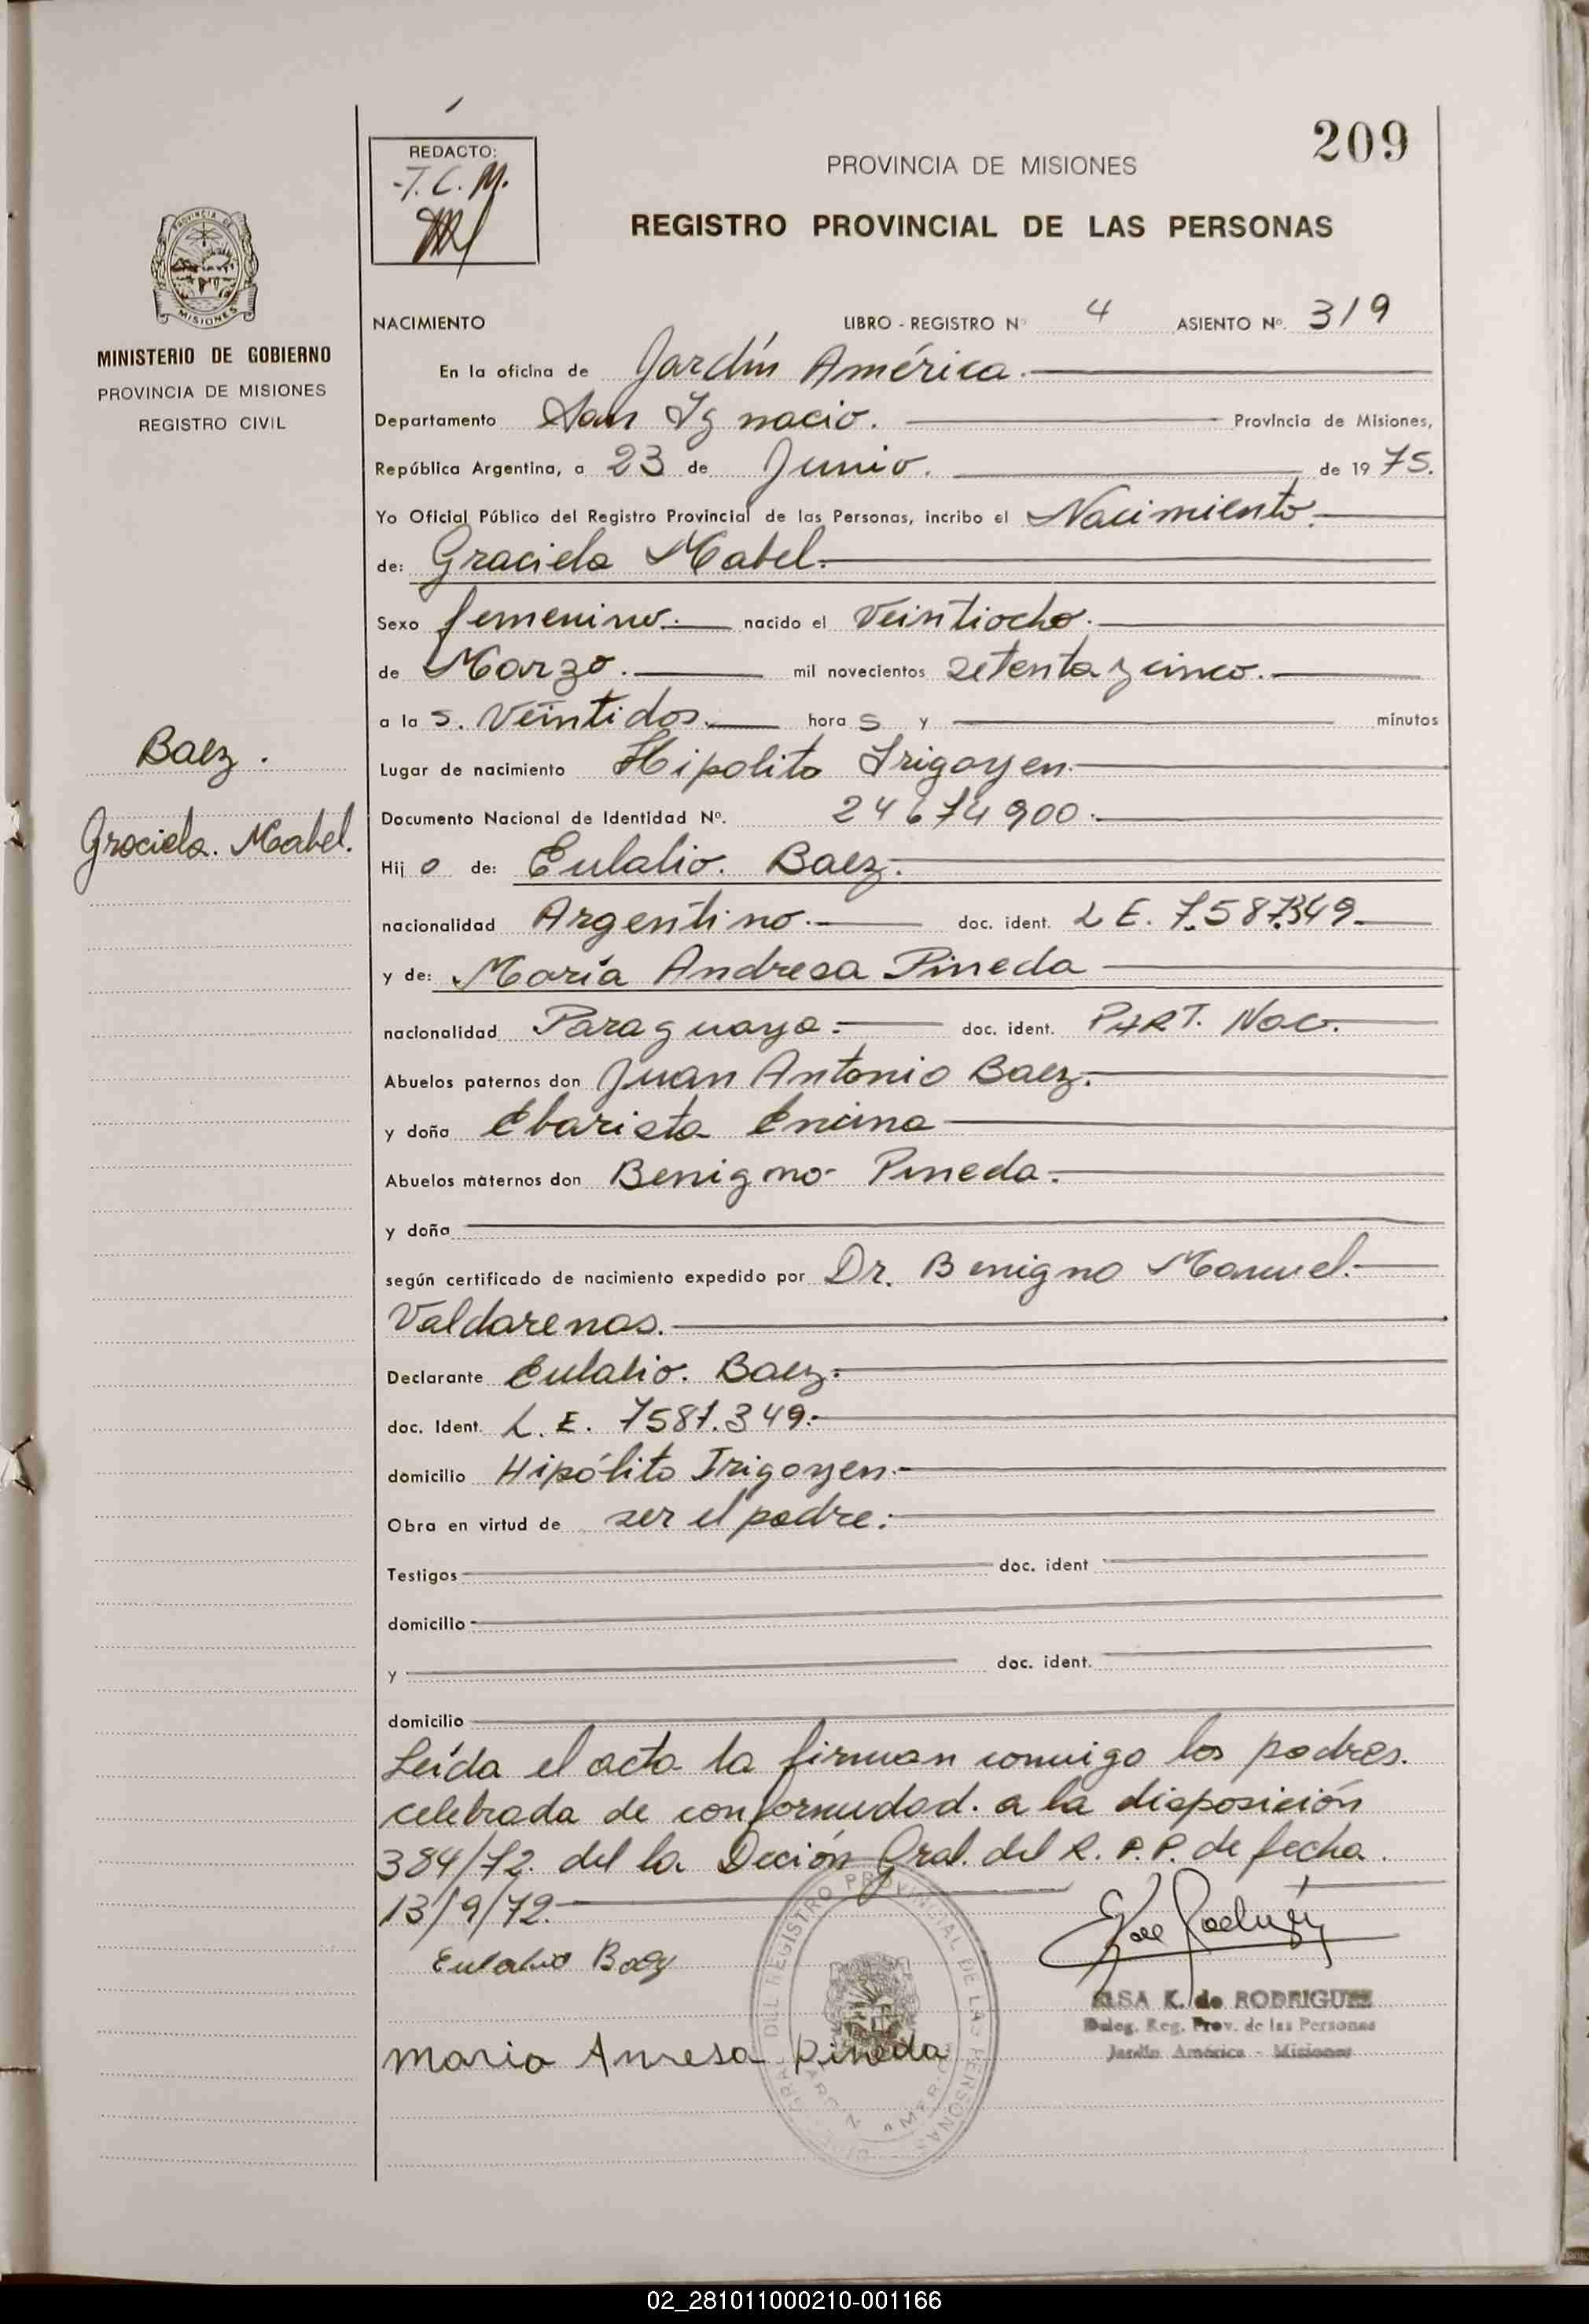 209
REDACTO:
T.C.M.
PROVINCIA DE MISIONES
REGISTRO PROVINCIAL DE LAS PERSONAS
PROVINCIA DE
MISIONES
MINISTERIO DE GOBIERNO
PROVINCIA DE MISIONES
REGISTRO CIVIL
NACIMIENTO LIBRO - REGISTRO Nº 4 ASIENTO Nº. 319
En la oficina de Jardín América.
Departamento San Ignacio. Provincia de Misiones,
República Argentina, a 23 de Junio. de 1975.
Yo Oficial Público del Registro Provincial de las Personas, incribo el Nacimiento.
de: Graciela Mabel.
Sexo femenino. nacido el Veintiocho.
de Marzo. mil novecientos setenta y cinco.
a la s. Veintidos. hora s y minutos
Baez.
Lugar de nacimiento Hipolito Irigoyen.
Graciela. Mabel.
Documento Nacional de Identidad Nº. 24674900.
Hij a de: Eulalio. Baez.
nacionalidad Argentino. doc. ident. L E. 7.587.349.
y de: María Andresa Pineda
nacionalidad Paraguaya. doc. ident. PART. Nac.
Abuelos paternos don Juan Antonio Baez.
y doña Ebarista Encina
Abuelos maternos don Benigno Pineda.
y doña
según certificado de nacimiento expedido por Dr. Benigno Manuel.
Valdarenas.
Declarante Eulalio. Baez.
doc. Ident. L. E. 7587.349.
domicilio Hipólito Irigoyen.
Obra en virtud de ser el padre.
Testigos doc. ident
domicilio
y doc. ident.
domicilio
Leída el acta la firman conmigo los padres.
celebrada de conformidad. a la disposición
384/72. del la Dección Gral. del R. P. P. de fecha.
13/9/72.
Eulalio Baez
DEL REGISTRO PROVINCIAL DE LAS PERSONAS
ELSA K. de RODRIGUEZ
Deleg. Reg. Prov. de las Personas
Jardín América - Misiones
Maria Anresa Pineda
02_281011000210-001166